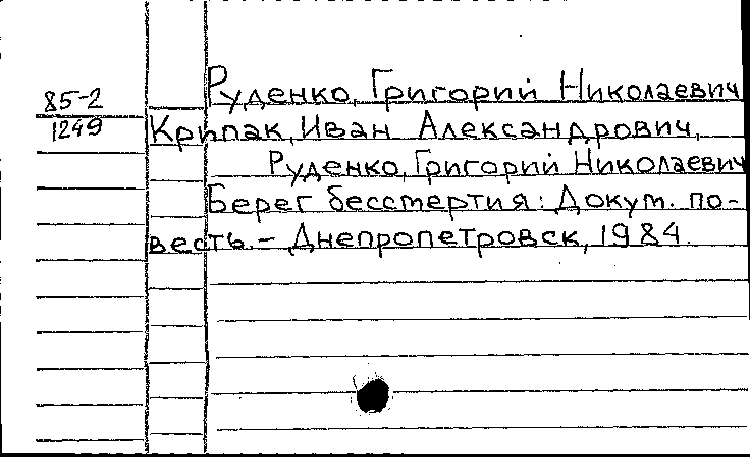 Руденко, Григорий Николаевич
85-2
1249
Крипак, Иван Александрович,
Руденко, Григорий Николаевич
Берег бессмертия: Докум. по-
весть. - Днепропетровск, 1984.